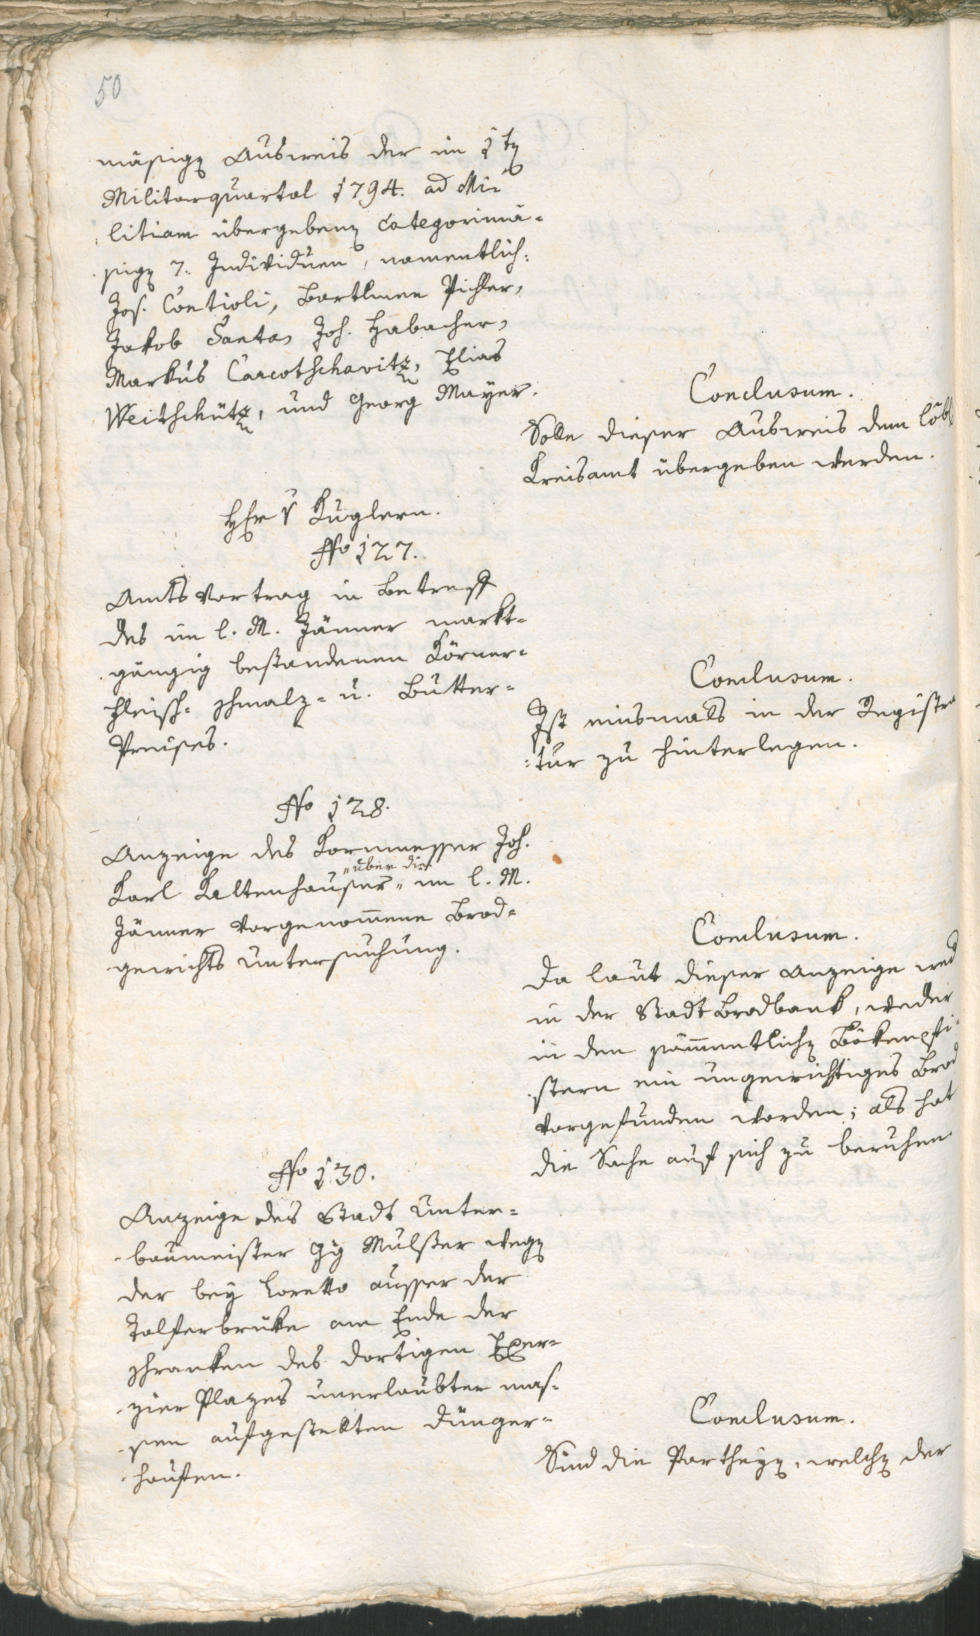 50
mäsigen Ausweis der im 1ten
Militarquartal 1794. ad Mi-
litiam übergebenen categorimä-
sigen 7. Individuen, namentlich:
Jos. Contioli, Bartlmee Pichler,
Jakob Santa, Joh. Habacher,
Markus Carcotschavitz, Elias
Weitschütz, und Georg Mayer.
Conclusum.
Solle dieser Ausweis dem löbl
Kreisamt übergeben werden.
Kuglern.
No 127.
Amtsvortrag in Betreff
des im l. M. Jänner markt-
gängig bestandenen Körner-
Fleisch- Schmalz- u. Butter-
Preises.
Conclusum.
Ist einsmals in der Registra
tur zu hinterlegen.
No 128.
Anzeige des Kornmesser Joh.
Karl Kaltenhauser über die im l. M.
Jänner vorgenommene Brod-
gewichts Untersuchung.
Conclusum.
Da laut dieser Anzeige wed
in der Stadt Brodbank, weder
in den sämmentlichen Bökenpfi-
stern ein ungewichtiges Brod
vorgefunden worden; als hat
die Sache auf sich zu beruhen
No 130.
Anzeige des Stadt Unter-
baumeister Gg Mulser wegen
der bey Loretto ausser der
Talferbruke am Ende der
Schranken des dortigen Exer-
zier Plazes unerlaubter mas-
sen aufgestellten Dünger-
haufen.
Conclusum.
Sind die Partheyen, welche der